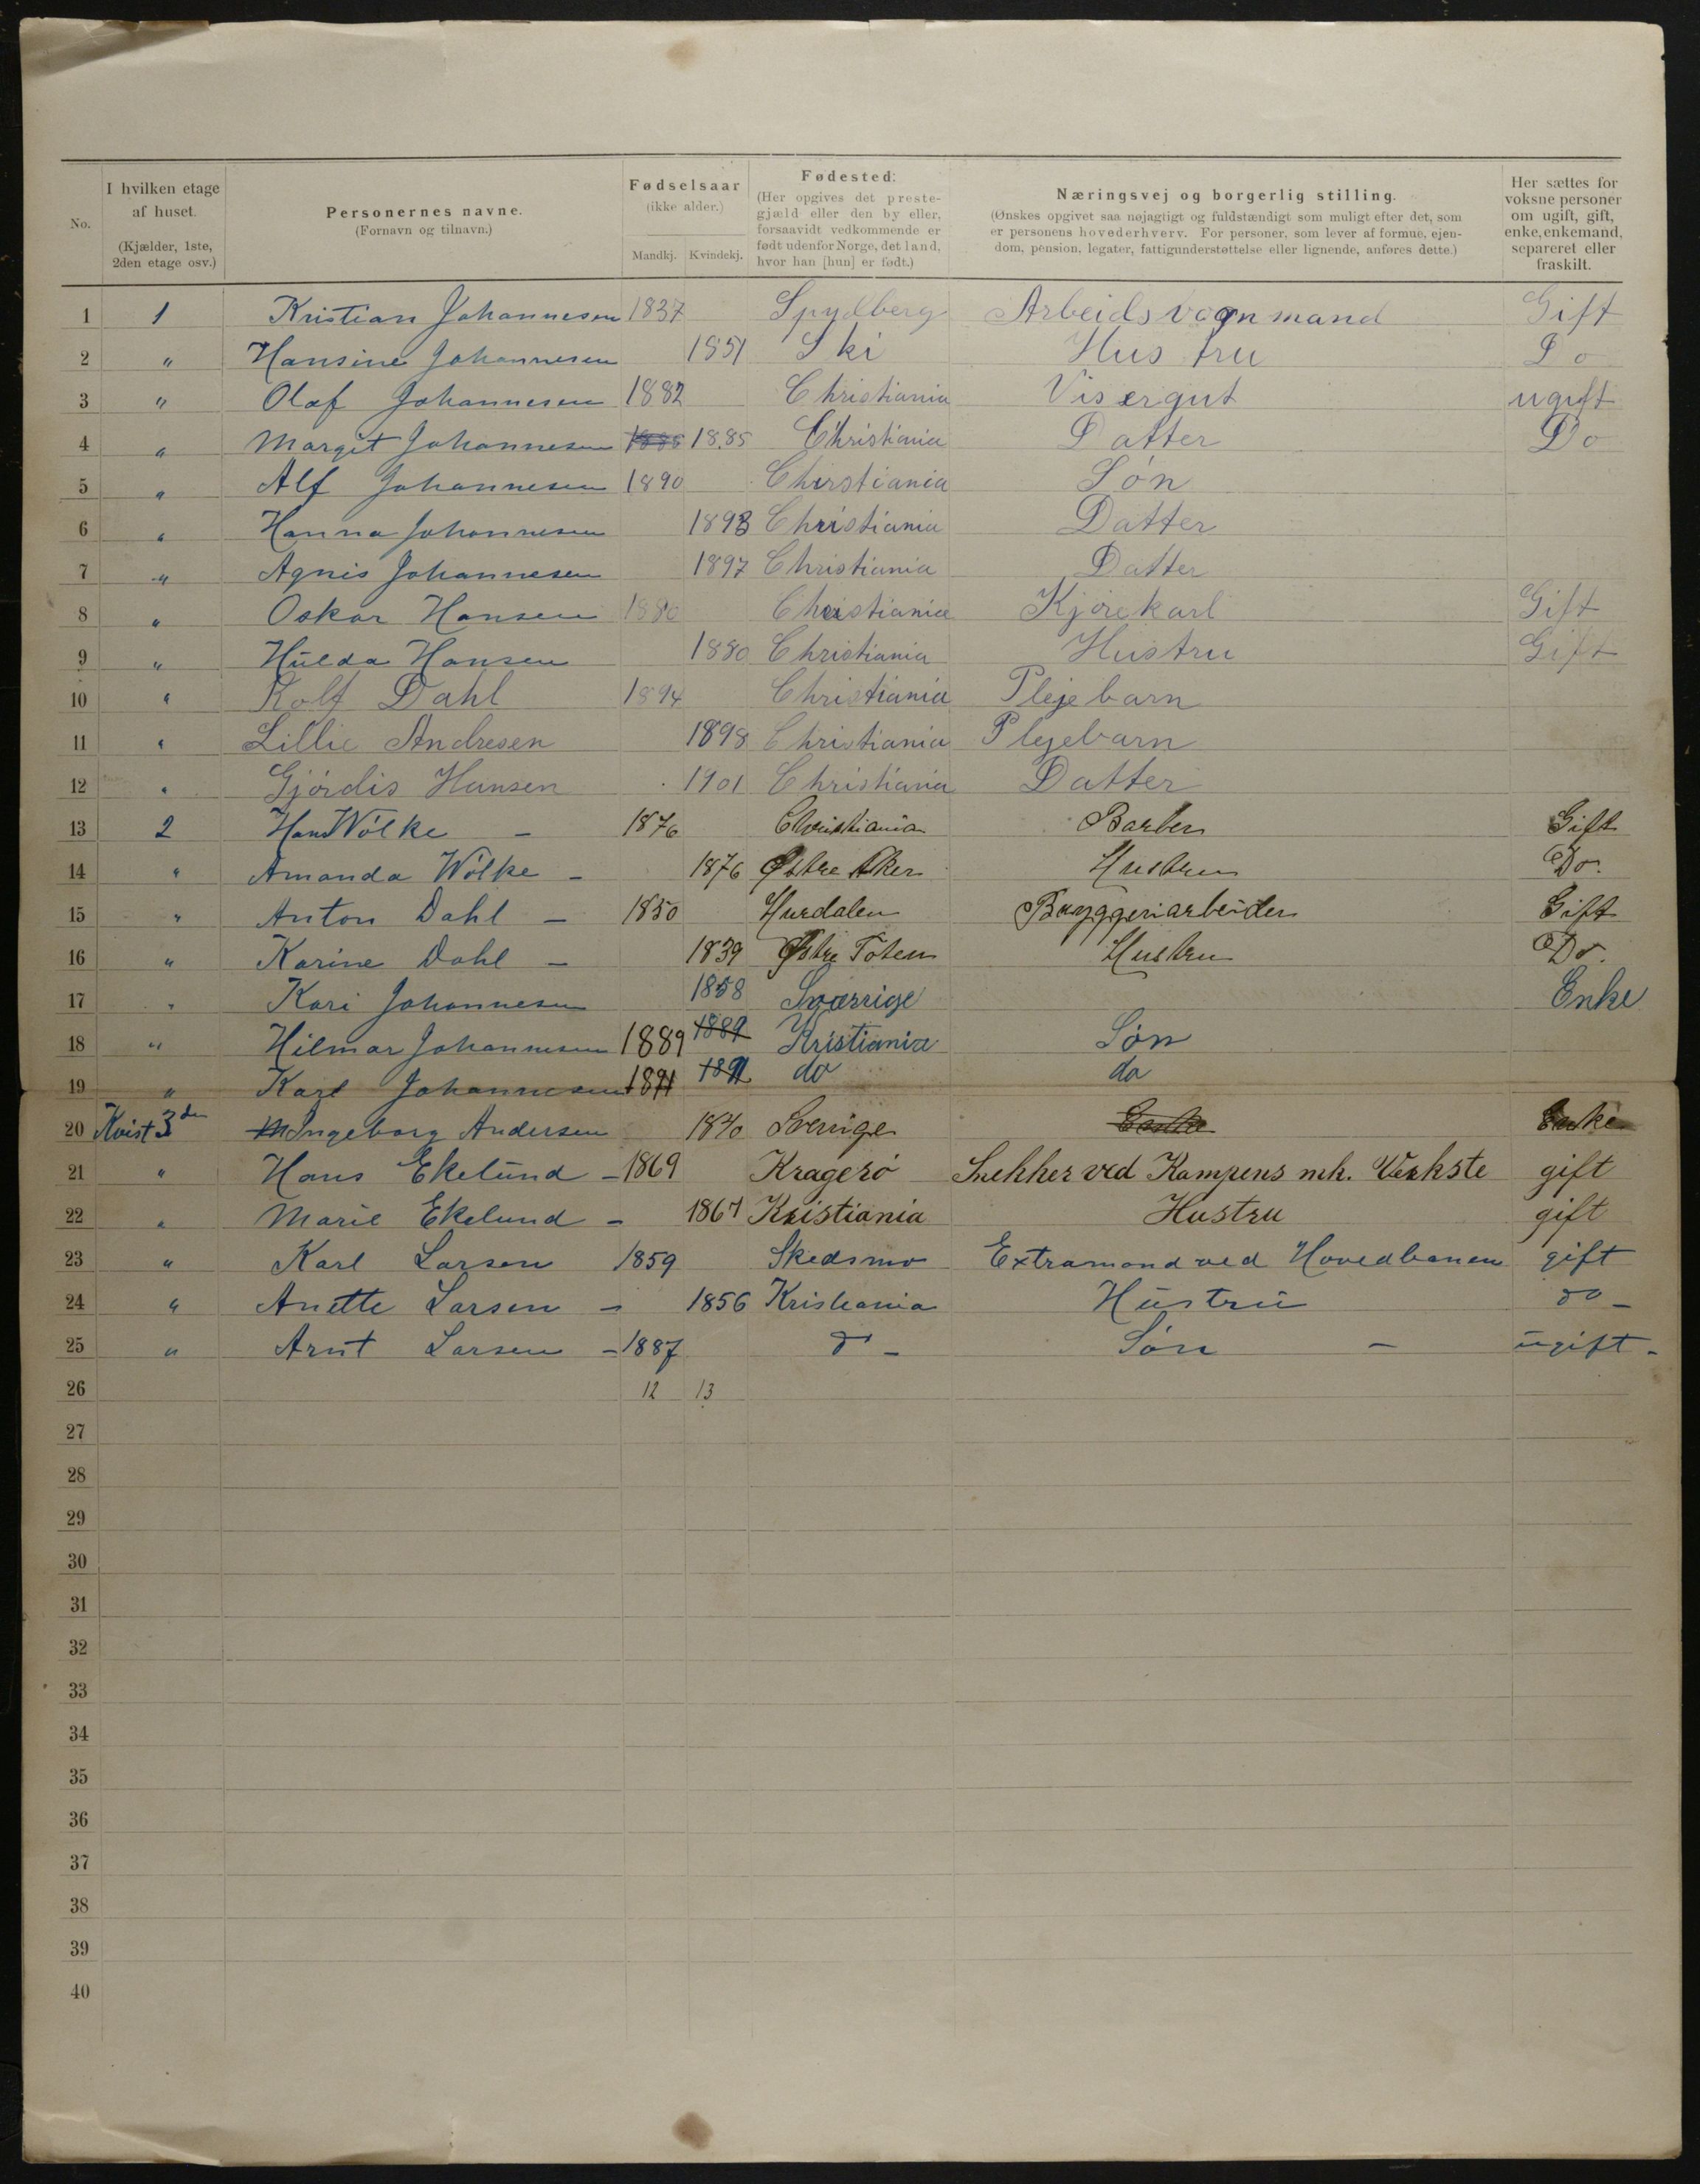 No. | I hvilken etage af huset. (Kjælder, 1ste, 2den etage osv.) | Personernes navne. (Fornavn og tilnavn.) | Fødselsaar (ikke alder.) Mandkj. | Kvindekj. | Fødested: (Her opgives det prestegjæld eller den by eller, forsaavidt vedkommende er født udenfor Norge, det land, hvor han [hun] er født.) | Næringsvej og borgerlig stilling. (Ønskes opgivet saa nøjagtigt og fuldstændigt som muligt efter det, som er personens hovederhverv. For personer, som lever af formue, ejendom, pension, legater, fattigunderstøttelse eller lignende, anføres dette.) | Her sættes for voksne personer om ugift, gift, enke, enkemand, separeret eller fraskilt.
1 1 Kristian Johannesen 1837 Spydberg Arbeidsvognmand Gift
2 " Hansine Johannesen 1851 Ski Hustru Do
3 " Olaf Johannesen 1882 Christiania Visergut ugift
4 " Margit Johannesen 1885 1885 Christiania Datter Do
5 " Alf Johannesen 1890 Chirstiania Søn
6 " Hanna Johannesen 1893 Christiania Datter
7 " Agnis Johannesen 1897 Christiania Datter
8 " Oskar Hansen 1880 Christiania Kjørekarl Gift
9 " Hulda Hansen 1880 Christiania Hustru Gift
10 " Rolf Dahl 1894 Christiania Plejebarn
11 " Lillie Andresen 1898 Christiania Plejebarn
12 " Gjørdis Hansen 1901 Christiania Datter
13 2 Hans Wölke – 1876 Christiania Barber Gift
14 " Amanda Wölke – 1876 Østre Aker Hustru Do.
15 " Anton Dahl – 1850 Hurdalen Bryggeriarbeider Gift
16 " Karine Dahl – 1839 Østre Toten Hustru Do.
17 " Kari Johannesen 1858 Sværrige Enke
18 " Hilmar Johannesen 1889 1889 Kristiania Søn
19 " Karl Johannesen 1891 1891 do do
20 Kvist 3den Ingeborg Andersen 1840 Sverrige Enke Enke
21 " Hans Ekelund – 1869 Kragerø Snekker ved Kampens mk. Verkste gift
22 " Marie Ekelund – 1867 Kristiania Hustru gift
23 " Karl Larsen 1859 Skedsmo Extramand ved Hovedbanen gift
24 " Anette Larsen – 1856 Kristiania Hustru do –
25 " Arnt Larsen – 1887 do – Søn – ugift –
26 12 13
27
28
29
30
31
32
33
34
35
36
37
38
39
40